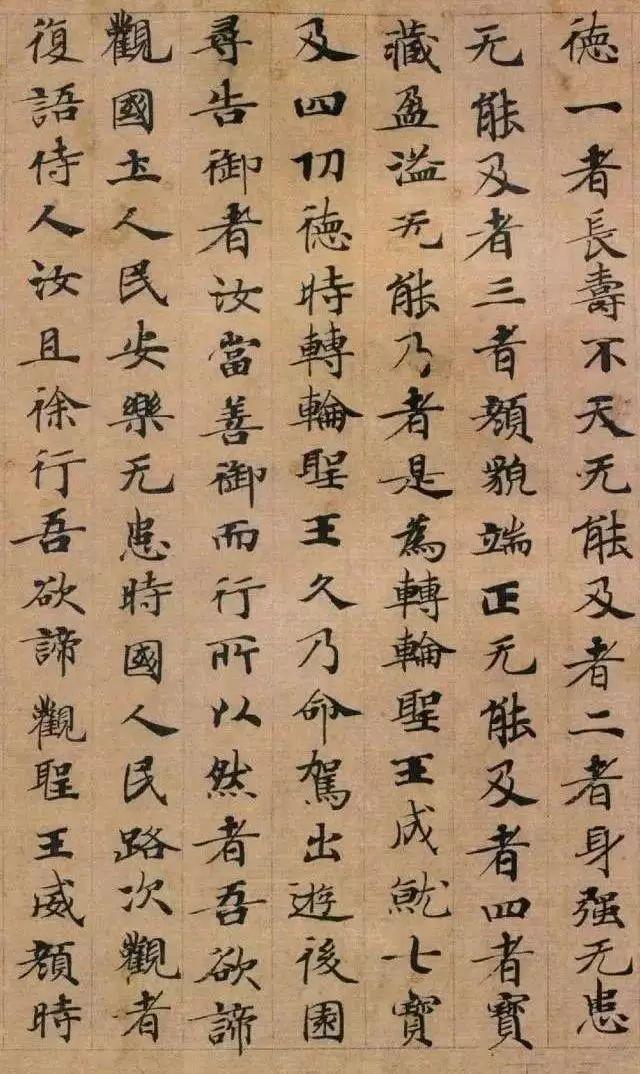 徳一者長壽不夭无能及者二者身强无患
无能及者三者顔貌端正无能及者四者寶
藏盈溢无能乃者是為轉輪聖王成就七寶
及四功徳時轉輪聖王久乃命駕出遊後園
尋告御者汝當善御而行所以然者吾欲諦
觀國土人民安樂无患時國人民路次觀者
復語侍人汝且徐行吾欲諦觀聖王威顔時